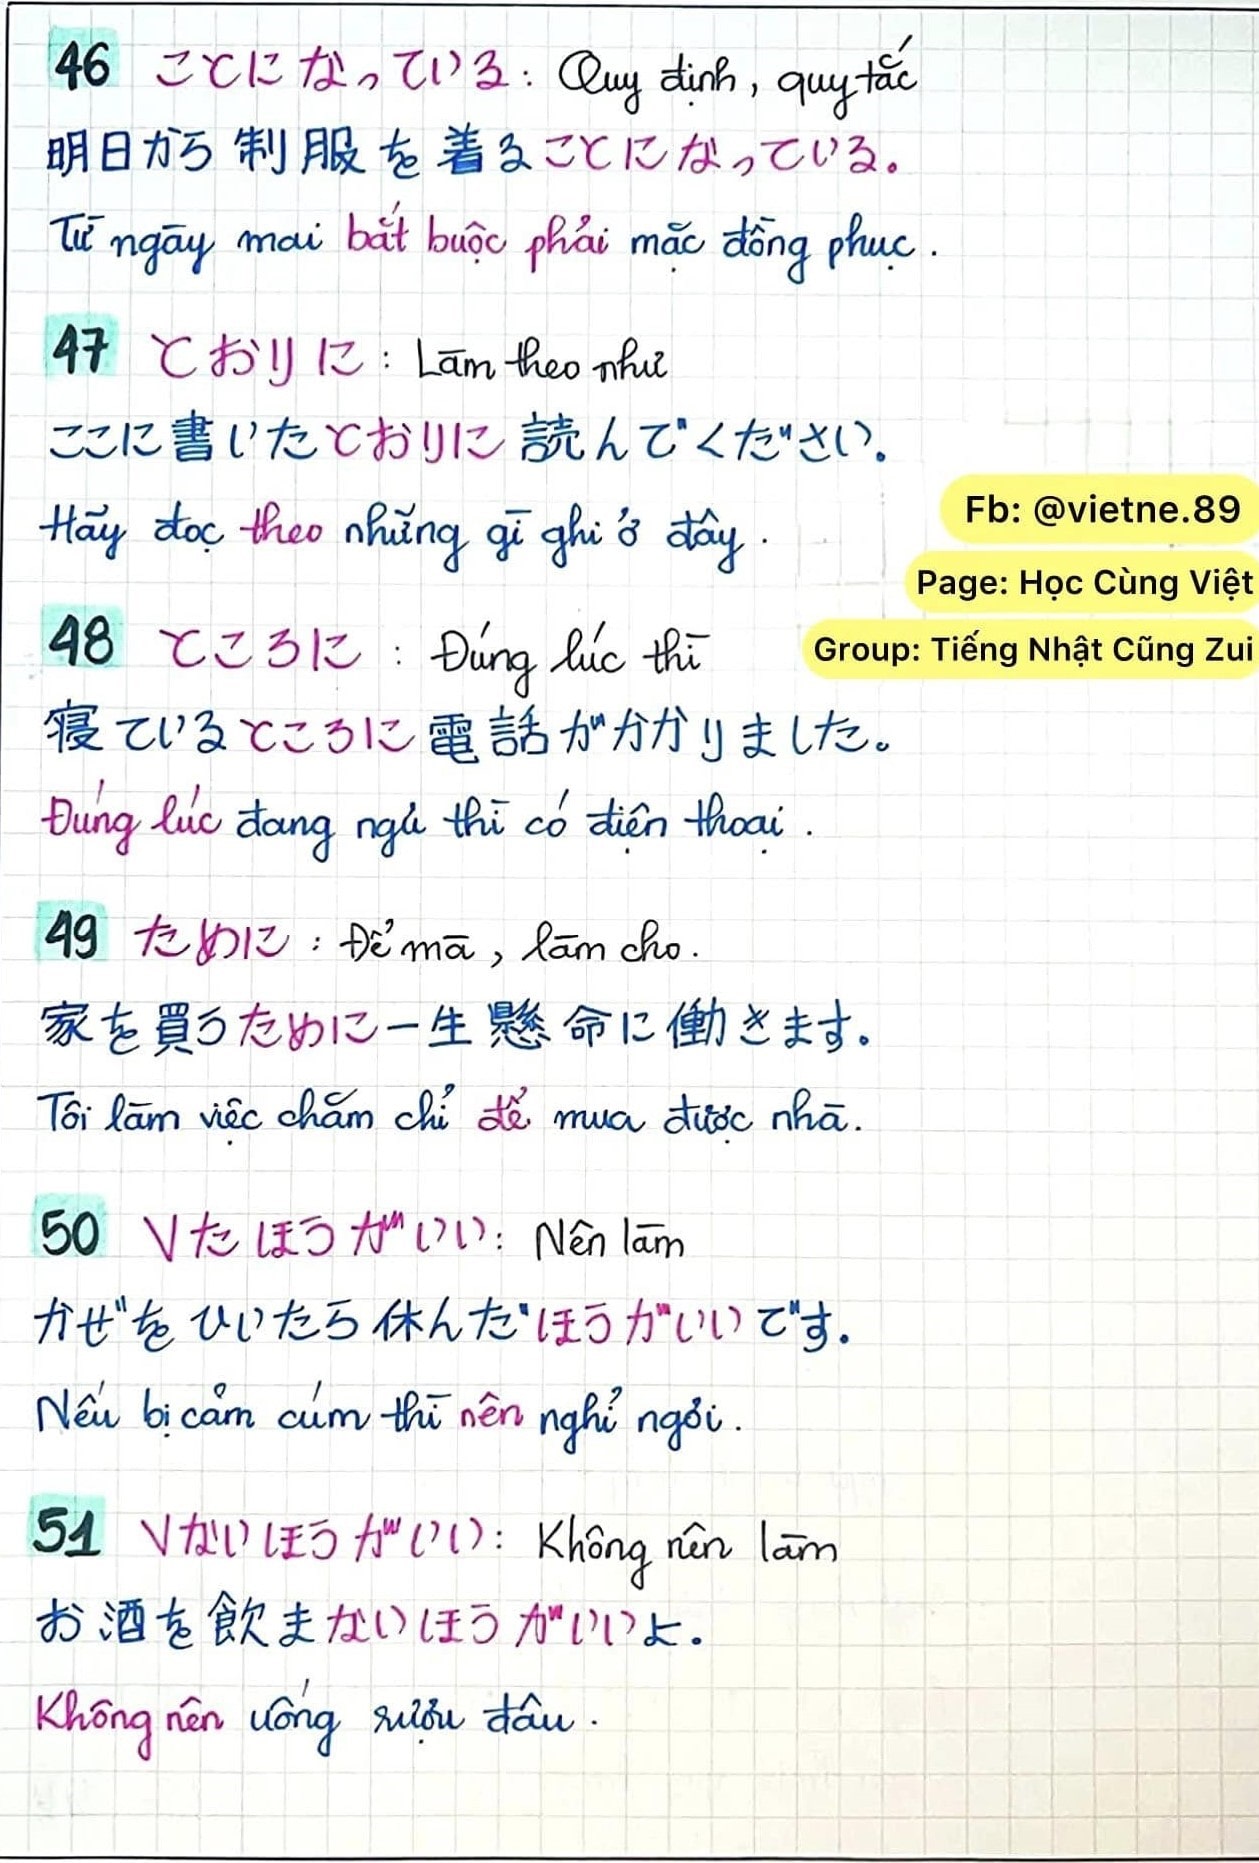 46 ことになっている: Quy định, quy tắc
明日から制服を着ることになっている。
Từ ngày mai bắt buộc phải mặc đồng phục.
47 とおりに: Làm theo như
ここに書いたとおりに読んでください。
Hãy đọc theo những gì ghi ở đây.
Fb: @vietne.89
Page: Học Cùng Việt
Group: Tiếng Nhật Cũng Zui
48 ところに: Đúng lúc thì
寝ているところに電話がかかりました。
Đúng lúc đang ngủ thì có điện thoại.
49 ために: Để mà, làm cho.
家を買うために一生懸命に働きます。
Tôi làm việc chăm chỉ để mua được nhà.
50 Vたほうがいい: Nên làm
かぜをひいたら休んだほうがいいです.
Nếu bị cảm cúm thì nên nghỉ ngơi.
51 Vないほうがいい: Không nên làm
お酒を飲まないほうがいいよ.
Không nên uống rượu đâu.